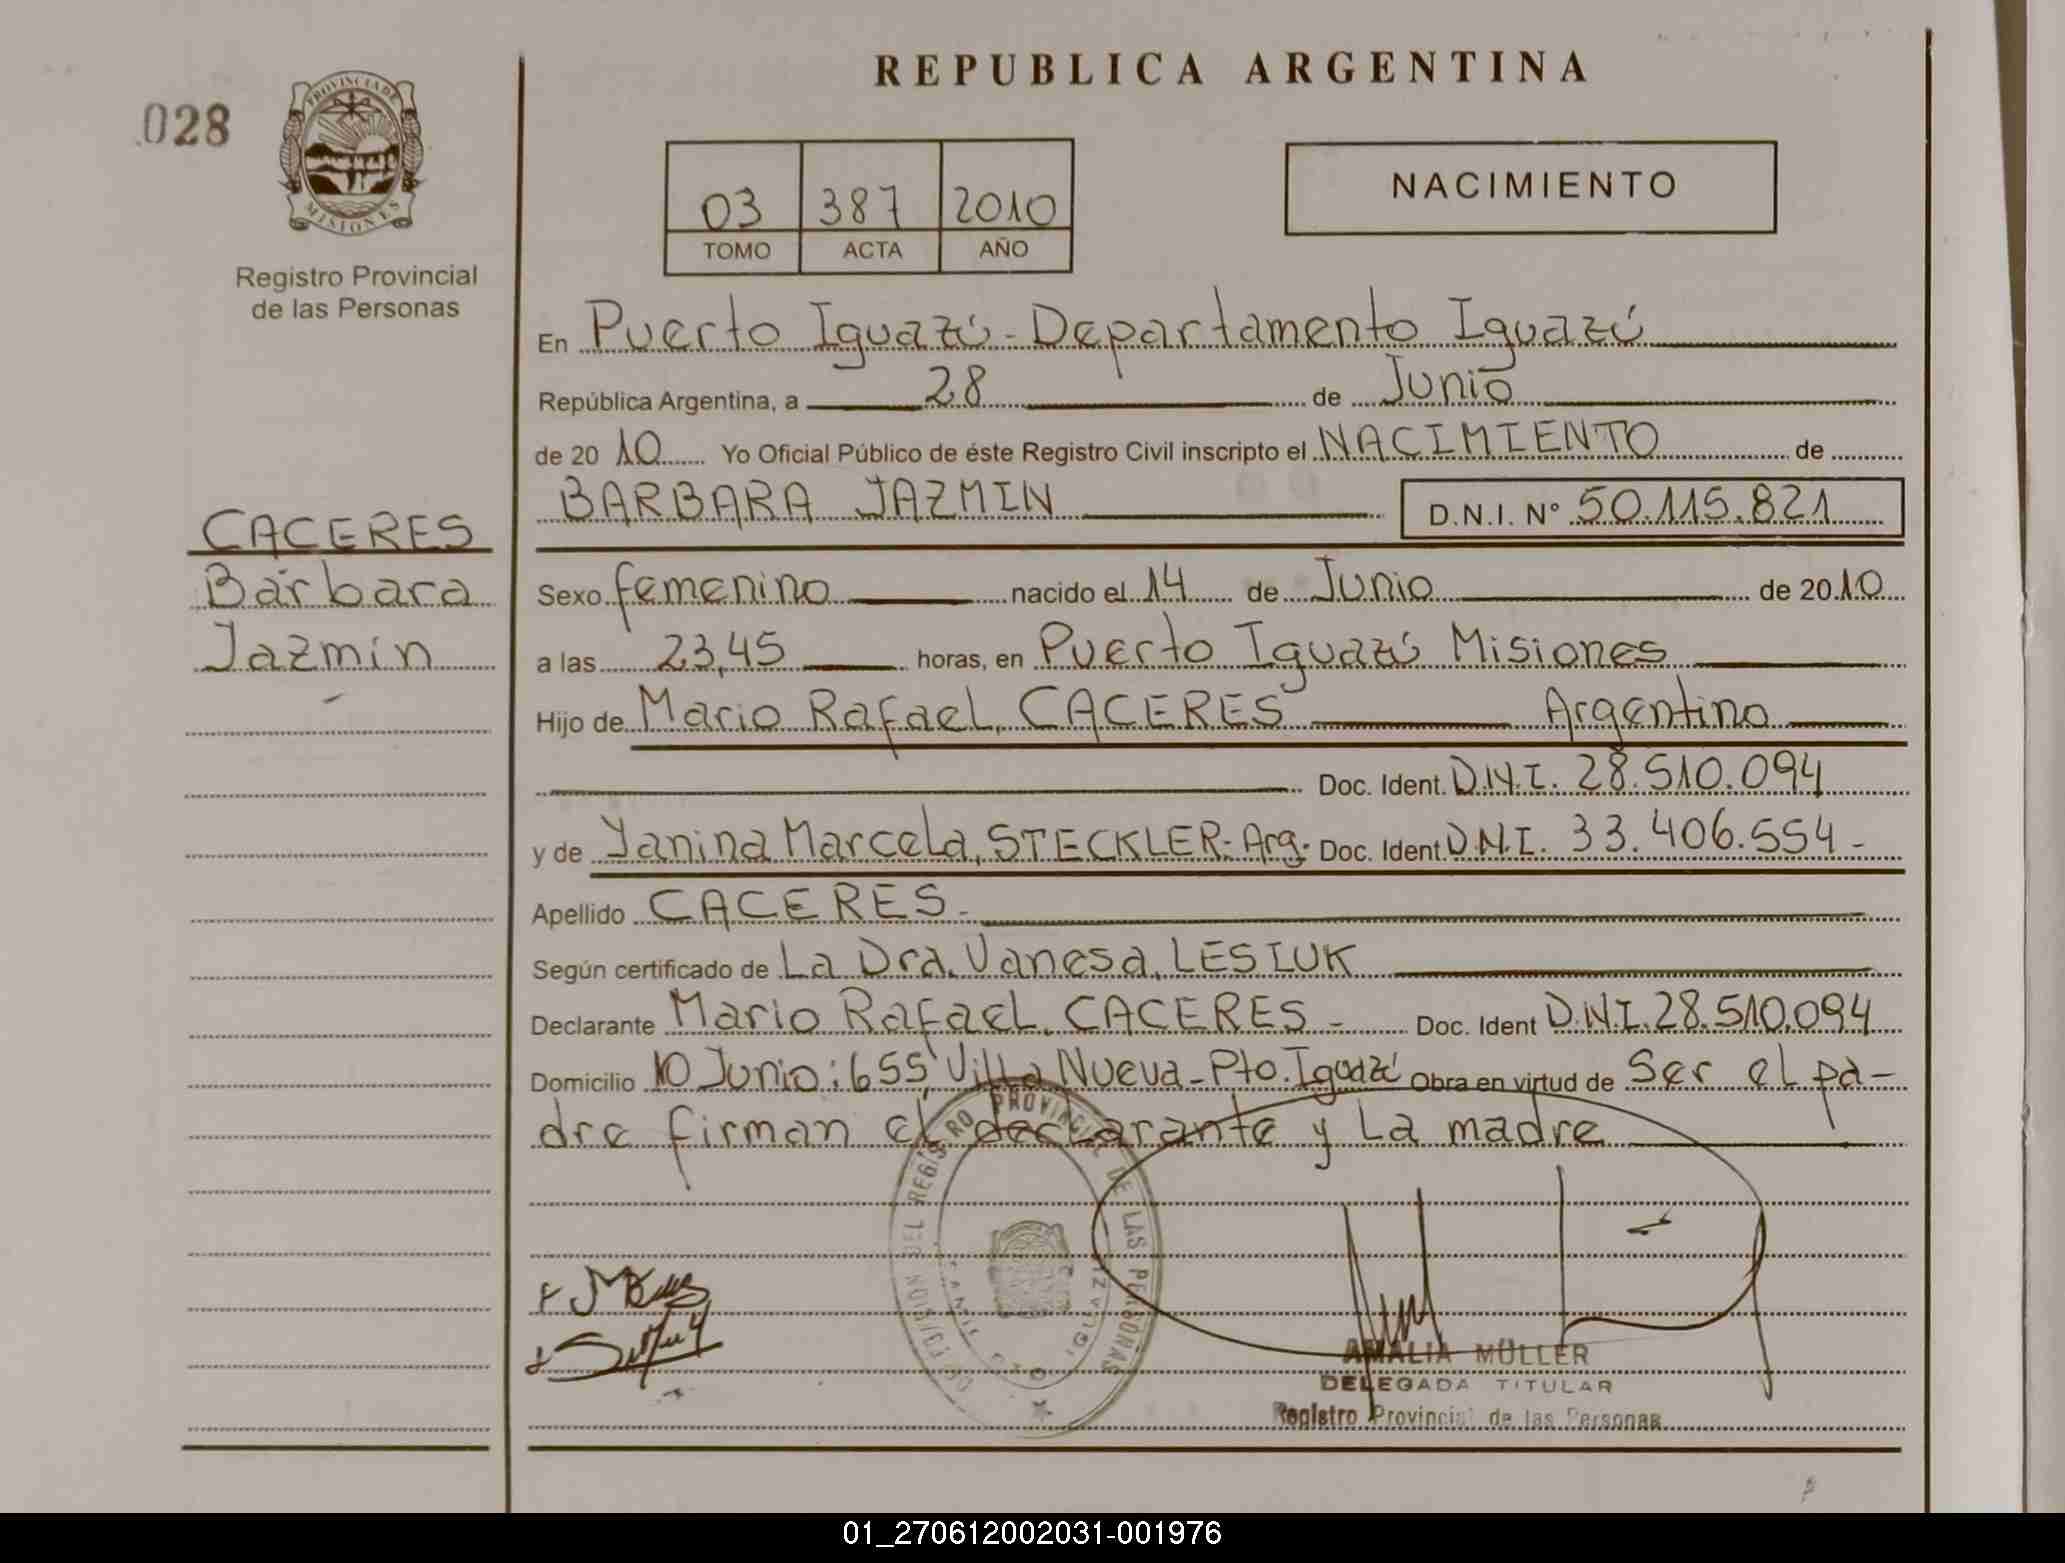 REPUBLICA ARGENTINA
028
PROVINCIA DE
MISIONES
Registro Provincial
de las Personas
03 387 2010
TOMO ACTA AÑO
NACIMIENTO
CACERES
Bárbara
Jazmín
En Puerto Iguazú - Departamento Iguazú
República Argentina, a 28 de Junio
de 20 10 Yo Oficial Público de éste Registro Civil inscripto el NACIMIENTO de
BARBARA JAZMIN D.N.I. N° 50.115.821
Sexo femenino nacido el 14 de Junio de 20 10
a las 23,45 horas, en Puerto Iguazú Misiones
Hijo de Mario Rafael, CACERES Argentino
Doc. Ident. D.N.I. 28.510.094
y de Yanina Marcela, STECKLER- Arg. Doc. Ident D.N.I. 33.406.554 -
Apellido CACERES -
Según certificado de La Dra. Vanesa, LESIUK
Declarante Mario Rafael, CACERES - Doc. Ident D.N.I. 28.510.094
Domicilio 10 Junio: 655 Villa Nueva - Pto. Iguazú Obra en virtud de Ser el pa-
dre firman el declarante y La madre
REGISTRO PROVINCIAL DE LAS PERSONAS
IGUAZU
AMALIA MÜLLER
DELEGADA TITULAR
Registro Provincial de las Personas
01_270612002031-001976